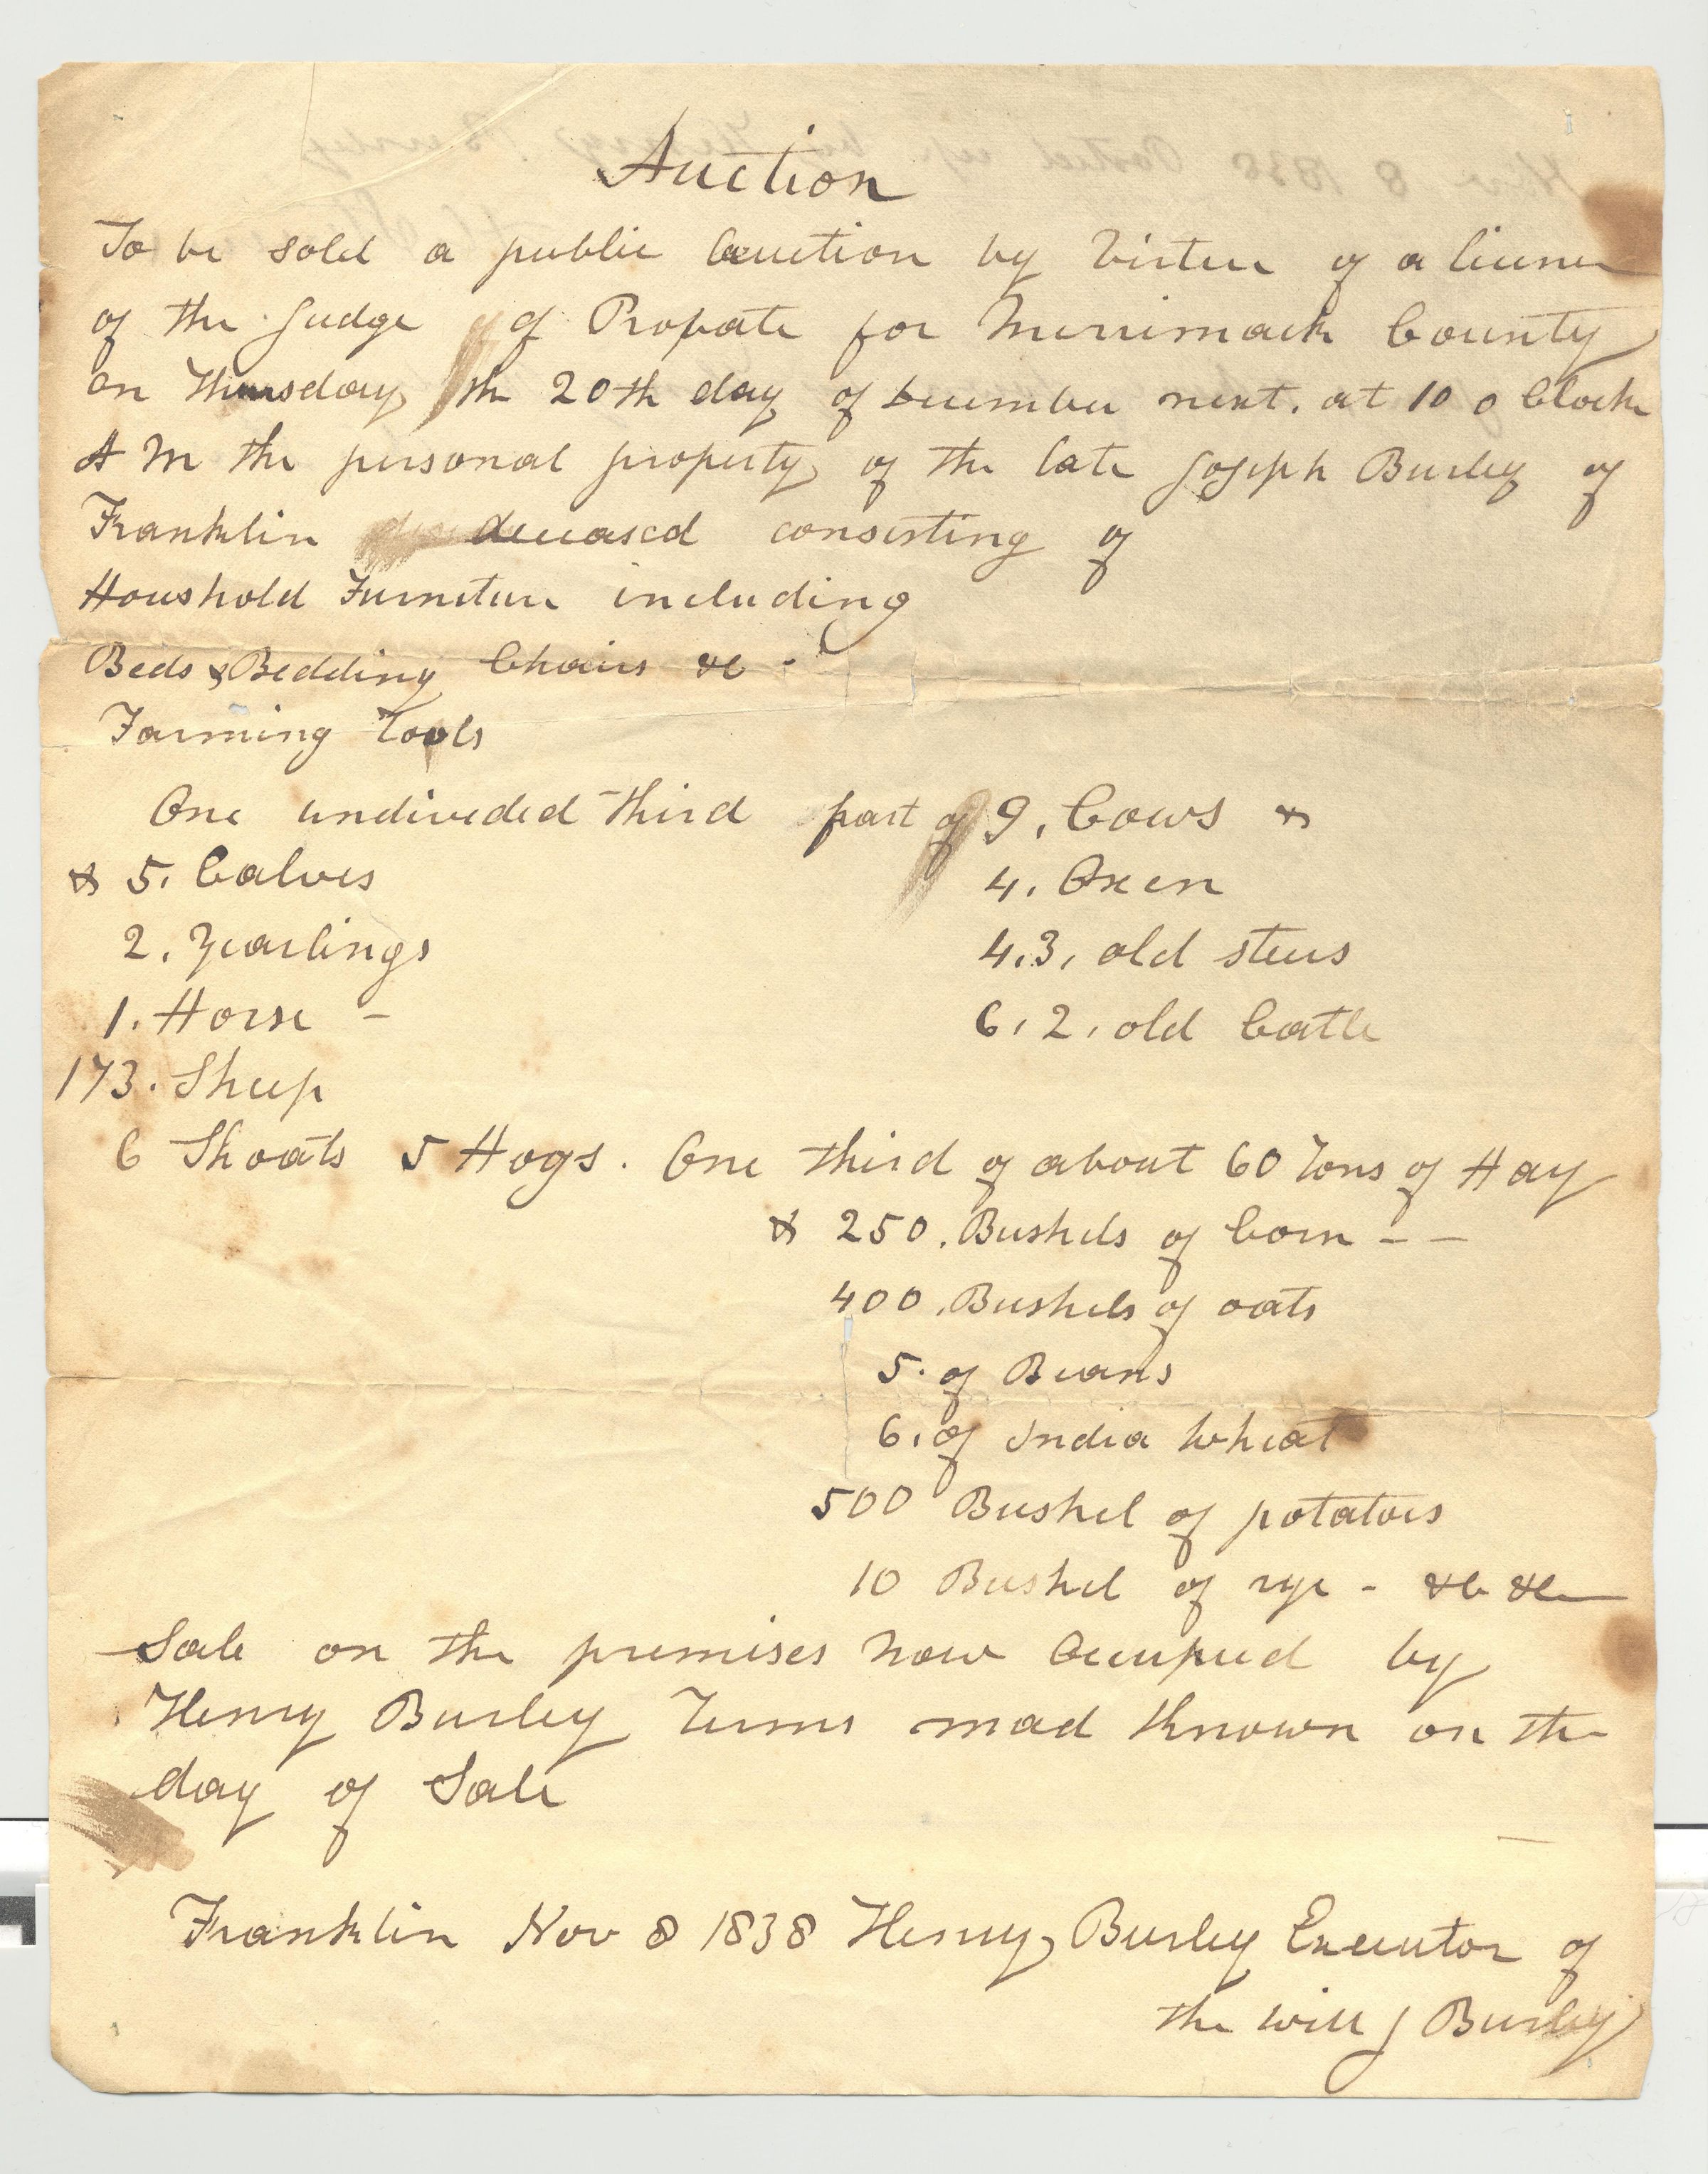 Auction
To be sold a public Auction by Virtue of a licence
of the Judge of Probate for Merrimack County
on Thursday the 20th day of December next. at 10 o Clock
A M the personal property of the late Joseph Burley of
Franklin deceased consisting of
Houshold Furniture including
Beds & Bedding Chairs &c -
Farming Tools
One undivided third part of 9. Cows &
& 5. Calves 4. Oxen
2. Yearlings 4.3. old steers
1. Horse - 6.2. old Cattle
173. Sheep
6 Shoats 5 Hogs. One third of about 60 Tons of Hay
& 250. Bushels of Corn - -
400. Bushels of oats
5. of Beans
6. of India Wheat
500 Bushel of potatoes
10 Bushel of rye - &c &c
Sale on the premises now Occupied by
Henry Burley Terms mad Known on the
day of Sale
Franklin Nov 8 1838 Henry Burley Executor of
the will J Burley